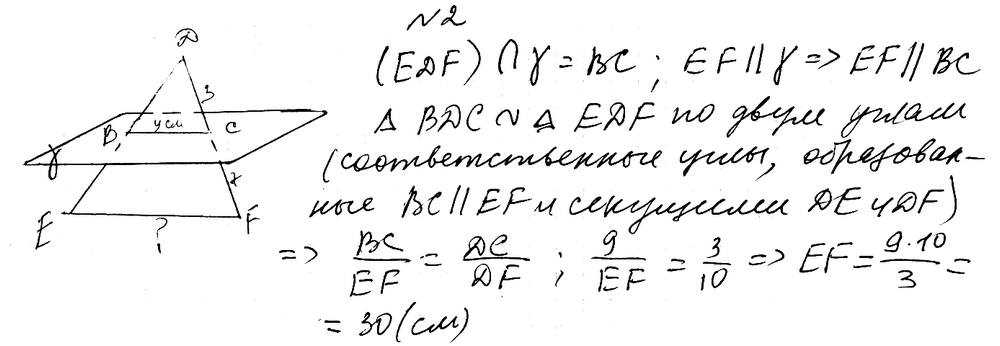 №2
D
3
9 см
B
C
γ
7
E
F
?
(EDF) ∩ γ = BC ; EF || γ => EF || BC
Δ BDC ~ Δ EDF по двум углам
(соответственные углы, образован-
ные BC || EF и секущими DE и DF)
=> BC/EF = DC/DF ; 9/EF = 3/10 => EF = 9·10/3 =
= 30 (см)